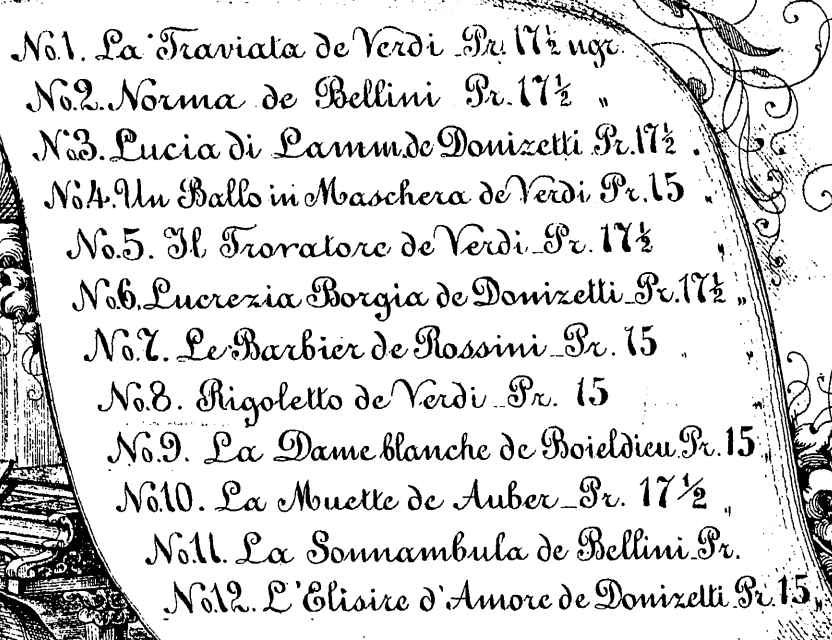 No.1. La Traviata de Verdi Pr. 17½ ngr.
No.2. Norma de Bellini Pr. 17½ "
No.3. Lucia di Lamm. de Donizetti Pr. 17½ "
No.4. Un Ballo in Maschera de Verdi Pr. 15 "
No.5. Il Trovatore de Verdi Pr. 17½ "
No.6. Lucrezia Borgia de Donizetti Pr. 17½ "
No.7. Le Barbier de Rossini Pr. 15 "
No.8. Rigoletto de Verdi Pr. 15 "
No.9. La Dame blanche de Boieldieu Pr. 15 "
No.10. La Muette de Auber Pr. 17½ "
No.11. La Sonnambula de Bellini Pr.
No.12. L'Elisire d'Amore de Donizetti Pr. 15 "